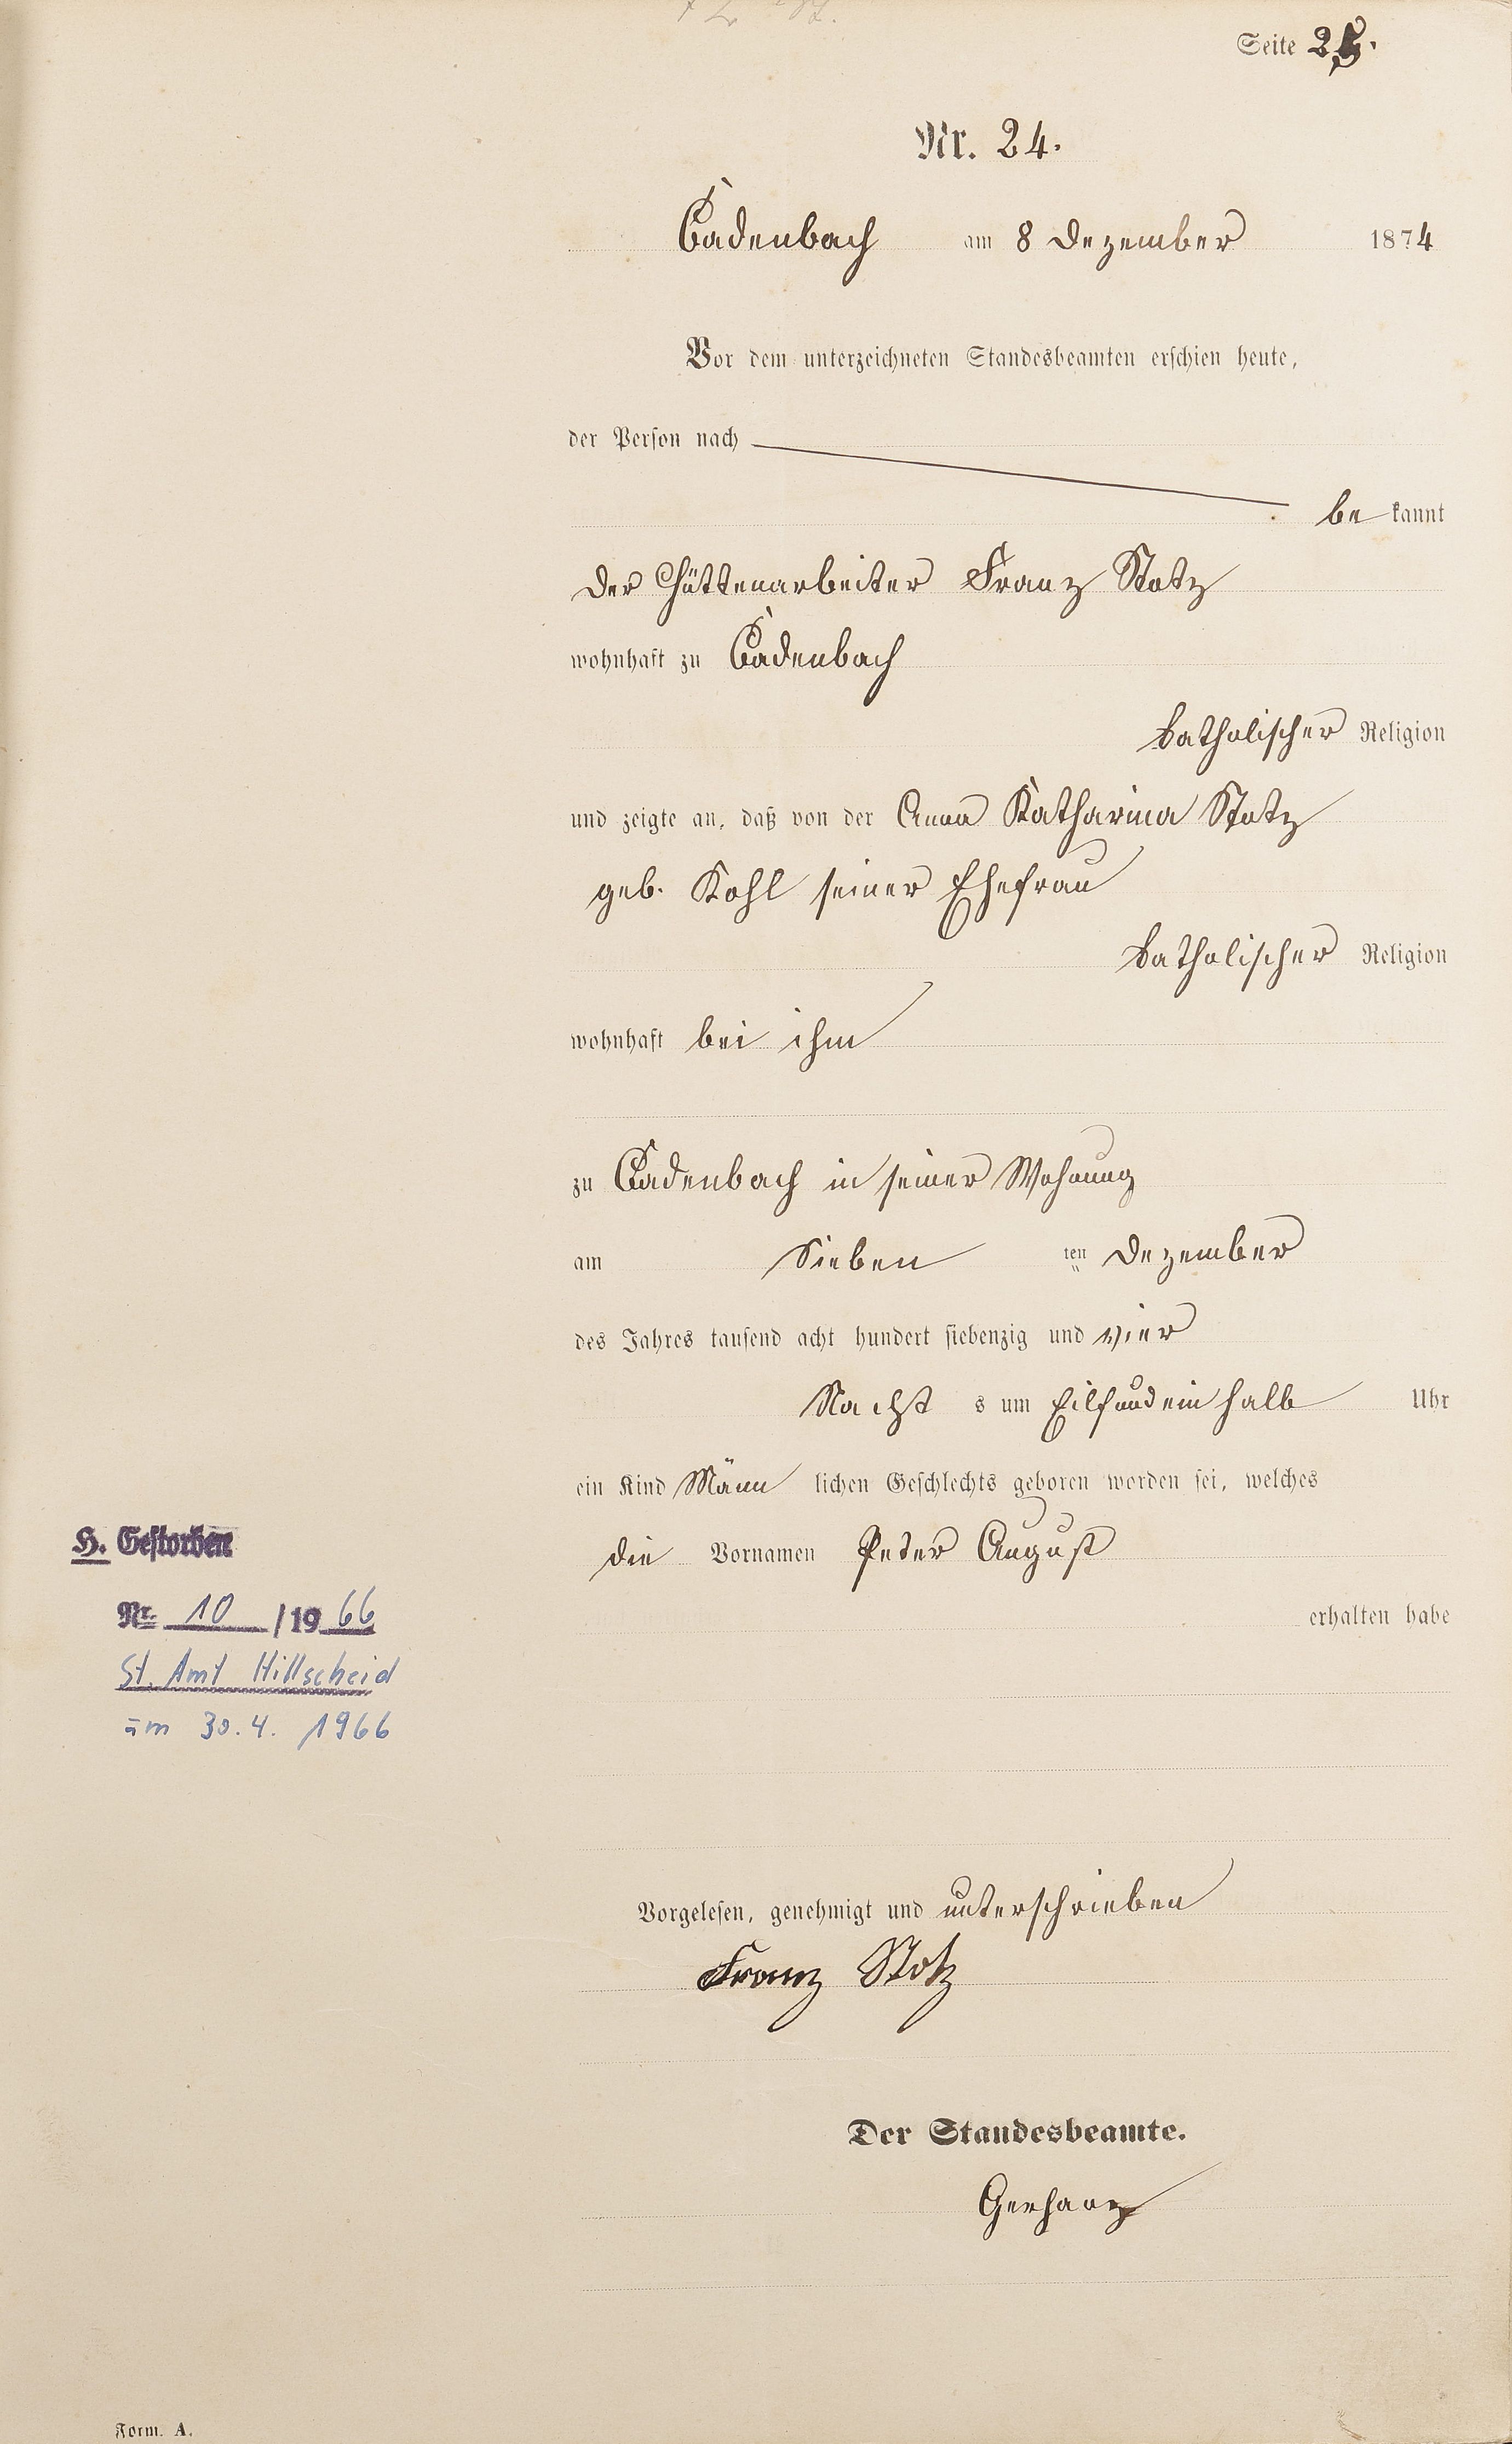 Seite
Nr. 24.
Cadenbach am 8 Dezember 1874
Vor dem unterzeichneten Standesbeamten erschien heute,
der Person nach
be kannt
der Hüttenarbeiter Franz Stotz
wohnhaft zu Cadenbach
katholischer Religion
und zeigte an, daß von der Anna Katharina Stotz
geb. Kohl seiner Ehefrau
katholischer Religion
wohnhaft bei ihm
zu Cadenbach in seiner Wohnung
am Sieben ten Dezember
des Jahres tausend acht hundert siebenzig und vier
Nacht s um Eilfundein halb Uhr
ein Kind Männ lichen Geschlechts geboren worden sei, welches
die Vornamen Peter August
erhalten habe
H. Gestorben
Nr. 10 / 19 66
St. Amt Hillscheid
am 30. 4. 1966
Vorgelesen, genehmigt und unterschrieben
Franz Stotz
Der Standesbeamte.
Gerharz
Form. A.